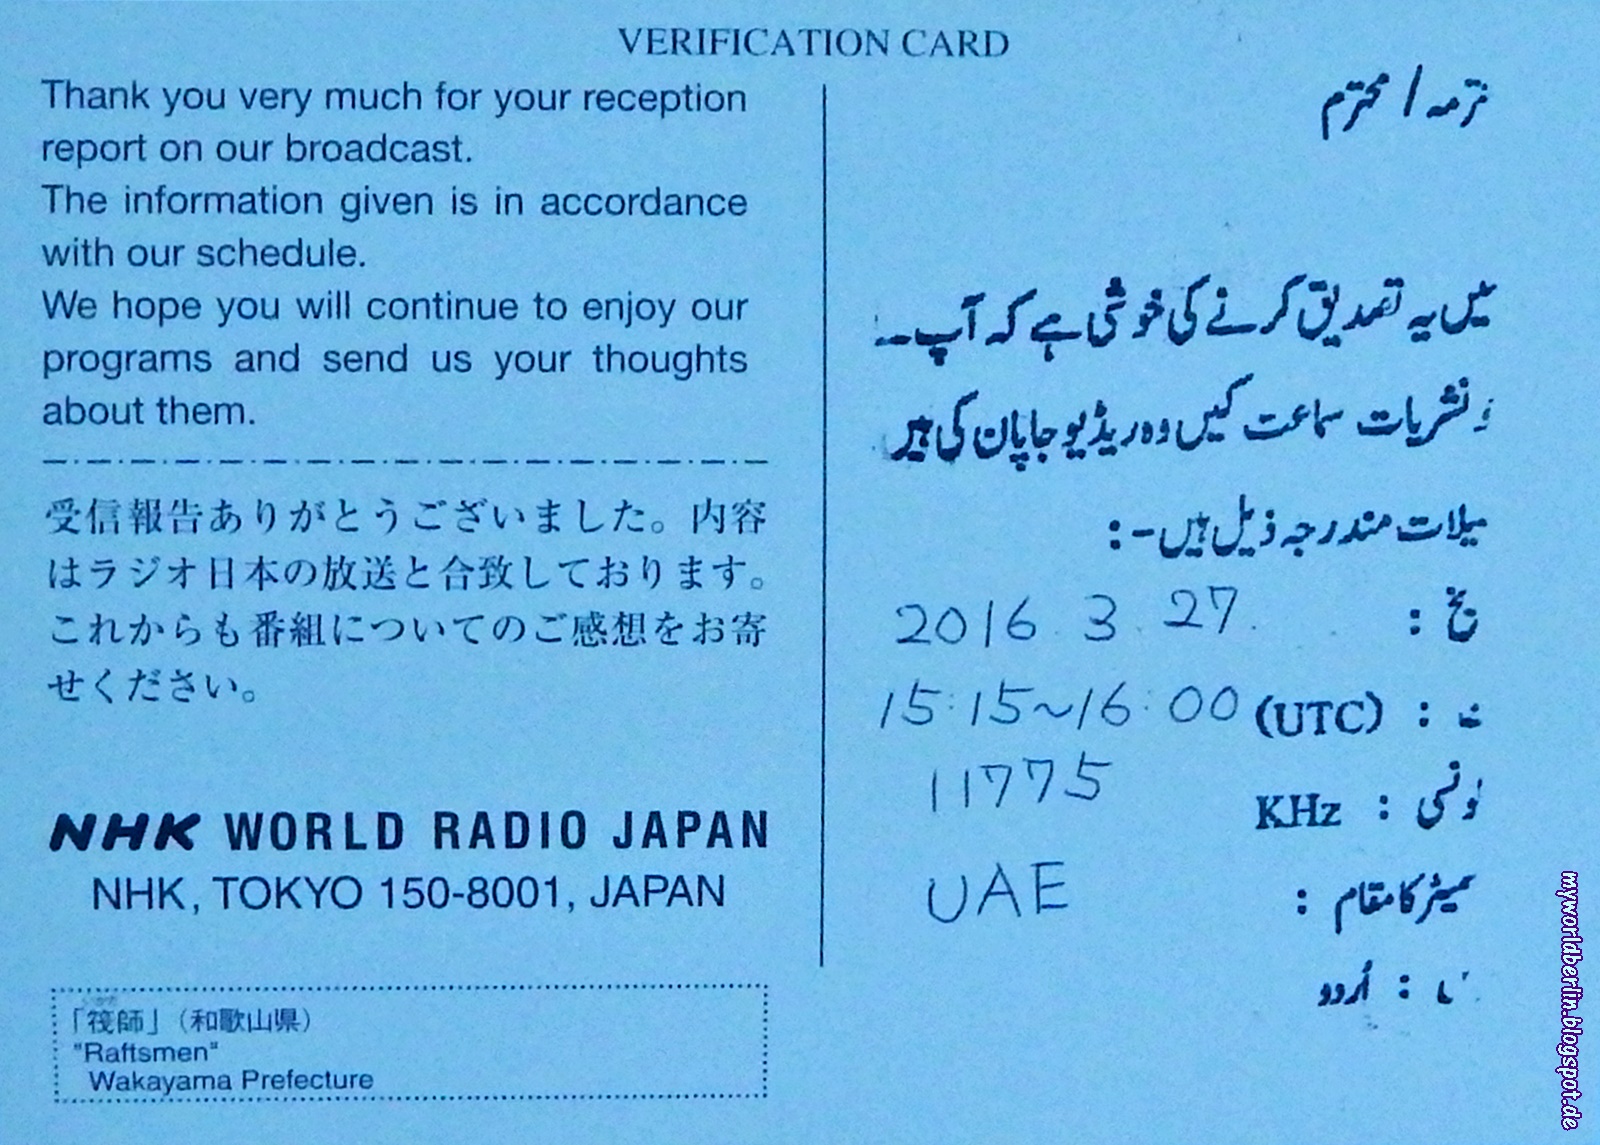 VERIFICATION CARD
Thank you very much for your reception
report on our broadcast.
The information given is in accordance
with our schedule.
We hope you will continue to enjoy our
programs and send us your thoughts
about them.
受信報告ありがとうございました。内容
はラジオ日本の放送と合致しております。
これからも番組についてのご感想をお寄
せください。
NHK WORLD RADIO JAPAN
NHK, TOKYO 150-8001, JAPAN
「筏師」（和歌山県）
"Raftsmen"
Wakayama Prefecture
/ محترم
یہ تصدیق کرنے کی خوشی ہے کہ آپ
نشریات سماعت کیں وہ ریڈیو جاپان کی ہیں
مندرجہ ذیل ہیں -:
: 2016. 3. 27.
: (UTC) 15:15~16:00
: KHz 11775
کا مقام : UAE
: اُردو
myworldberlin.blogspot.de